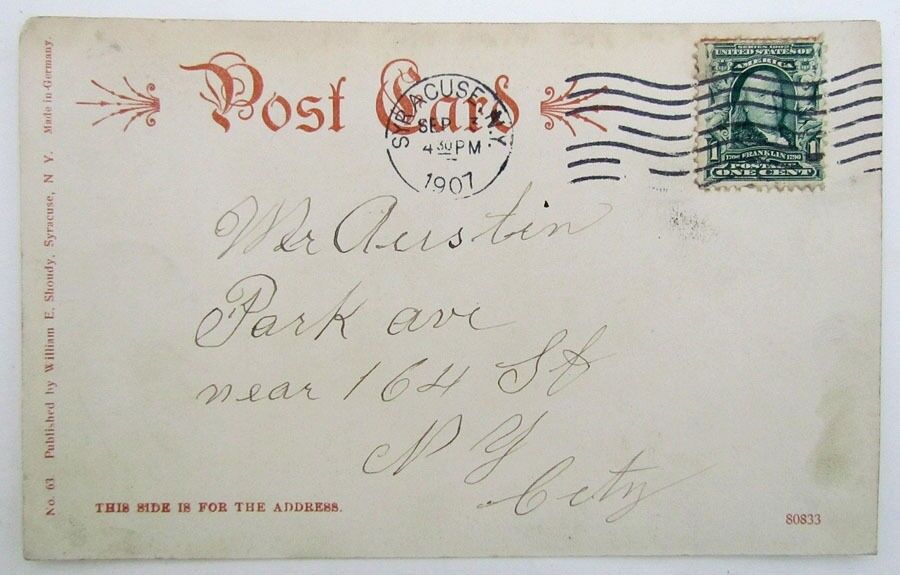 Post Card
SYRACUSE, N.Y.
SEP 3
4 30 PM
1907
SERIES 1902
UNITED STATES OF
AMERICA
1706 FRANKLIN 1790
POSTAGE
1 ONE CENT 1
Mr Austin
Park ave
near 164 St
N Y
City
THIS SIDE IS FOR THE ADDRESS.
80833
No. 63 Published by William E. Shoudy, Syracuse, N Y. Made in Germany.